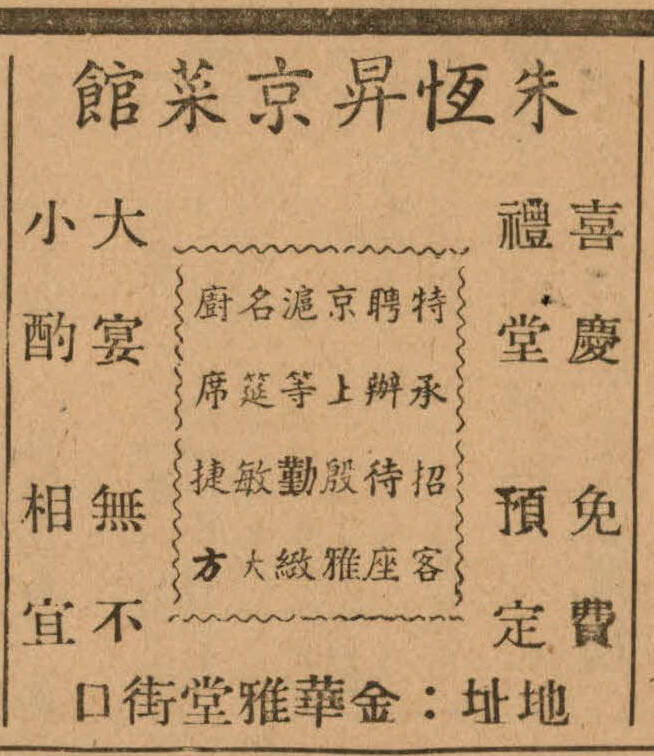 朱恆昇京菜館
喜慶免費
禮堂預定
特聘京滬名廚
承辦上等筵席
招待殷勤敏捷
客座雅緻大方
大宴無不
小酌相宜
地址：金華雅堂街口